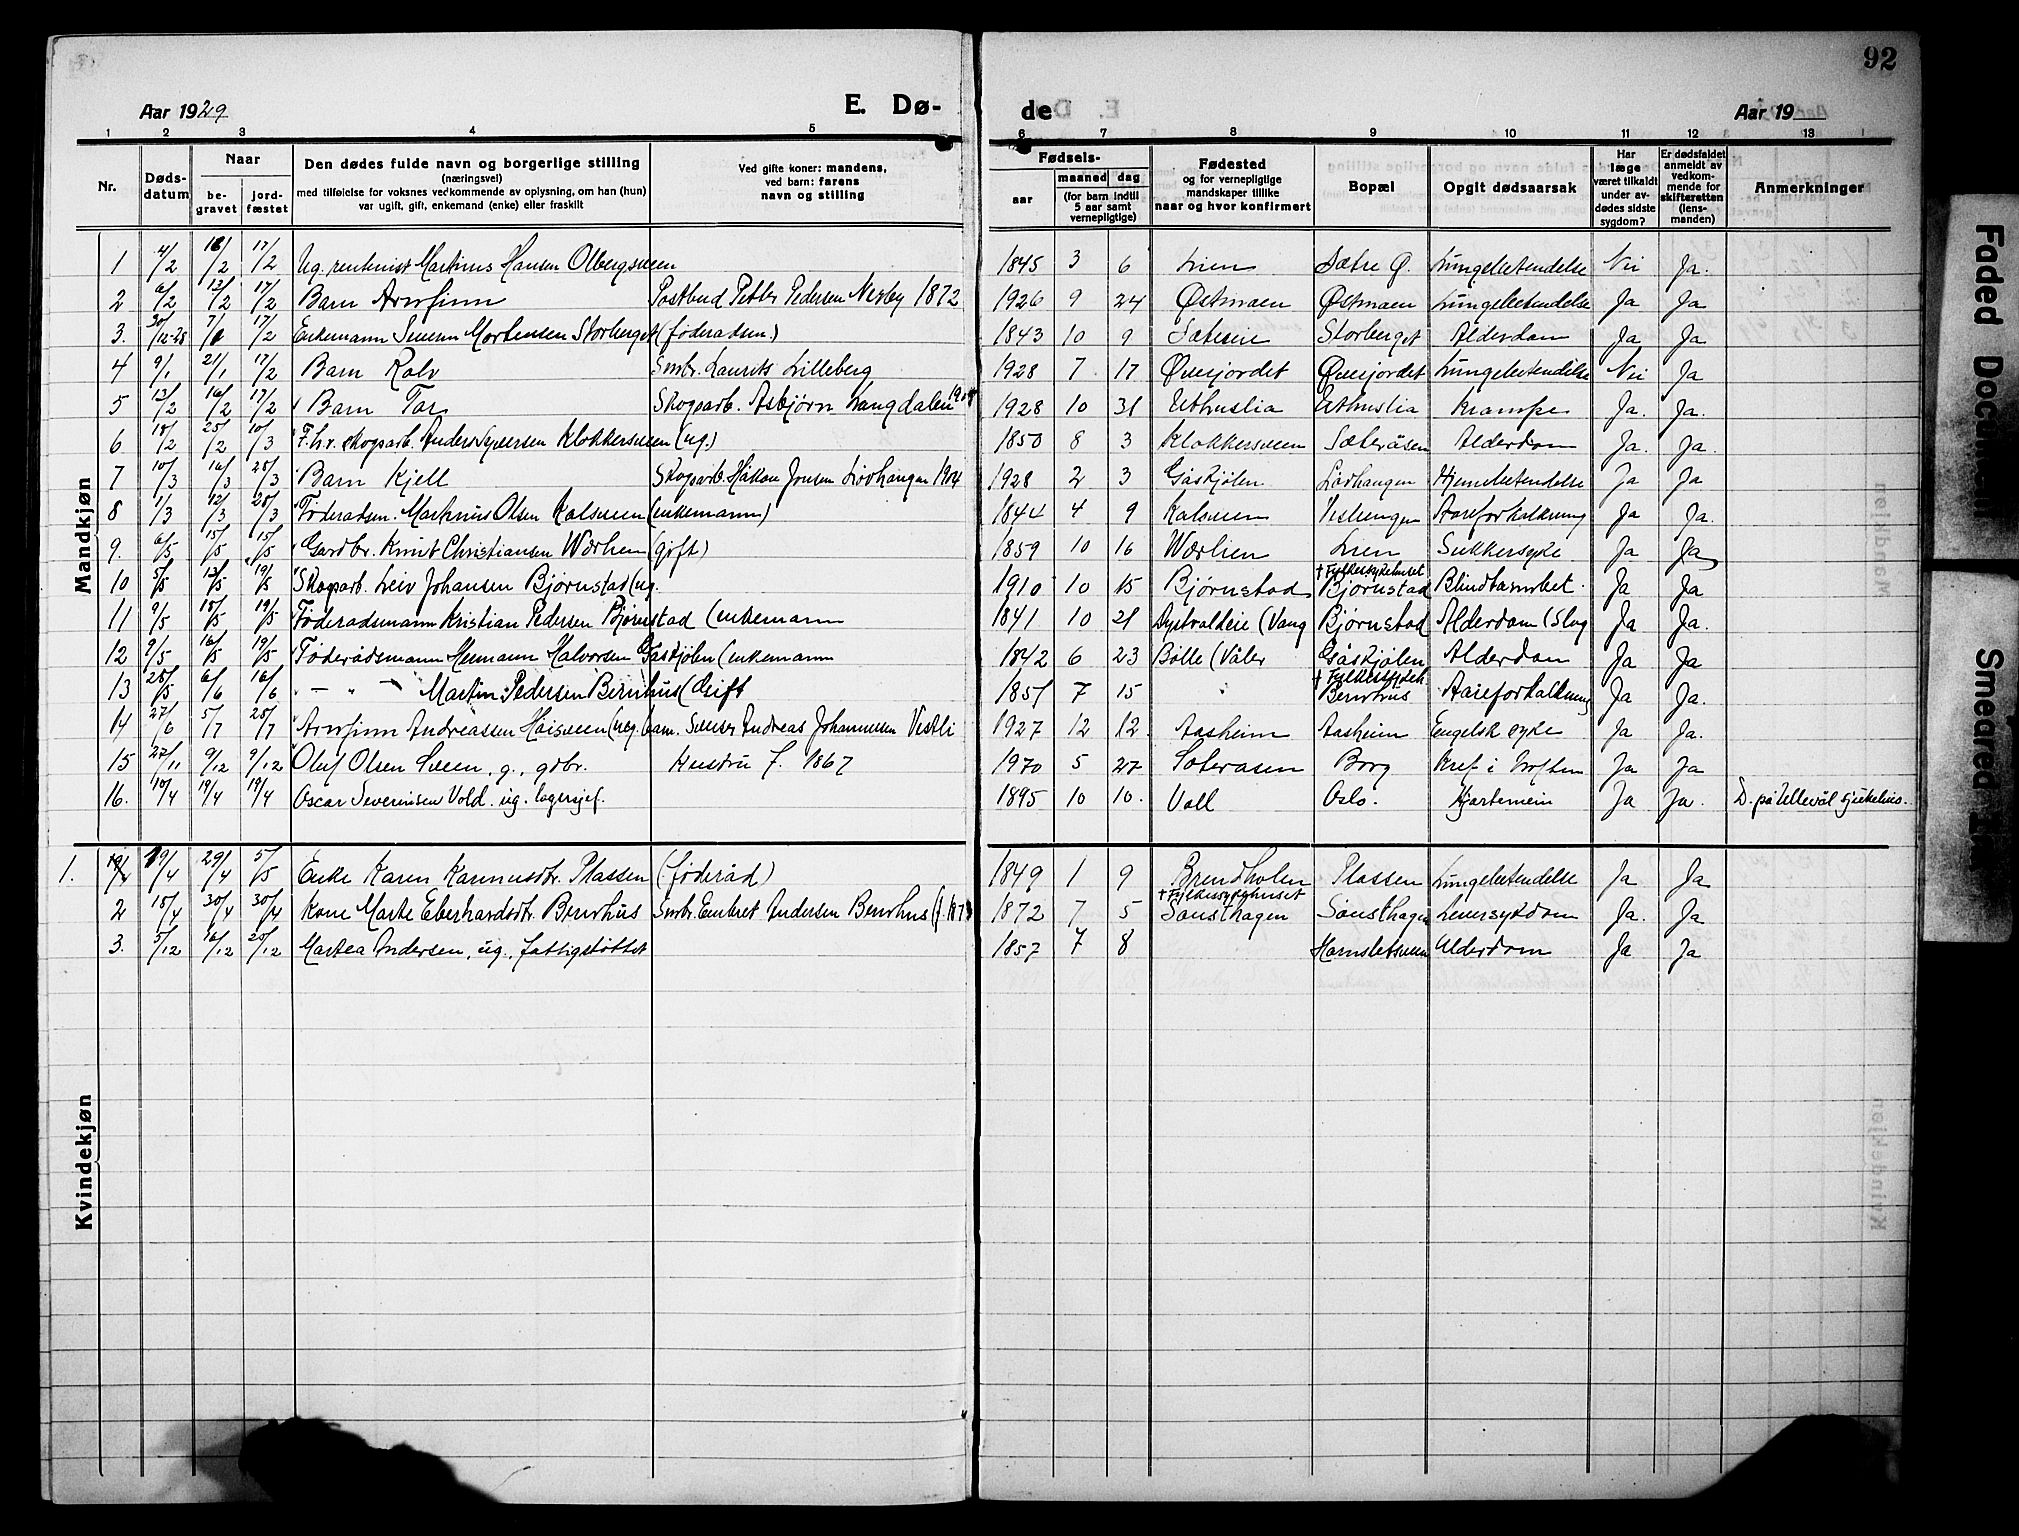 92
Aar 1929 E. Dø- de Aar 19
1 2 3 4 5 6 7 8 9 10 11 12 13
Nr. Døds-datum Naar be-gravet jord-fæstet Den dødes fulde navn og borgerlige stilling (næringsvei) med tilføielse for voksnes vedkommende av oplysning, om han (hun) var ugift, gift, enkemand (enke) eller fraskilt Ved gifte koner: mandens, ved barn: farens navn og stilling Fødsels- aar maaned dag (for barn indtil 5 aar samt vernepligtige) Fødested og for vernepligtige mandskaper tillike naar og hvor konfirmert Bopæl Opgit dødsaarsak Har læge været tilkaldt under av-dødes sidste sygdom? Er dødsfaldet anmeldt av vedkom-mende for skifteretten (lens-manden) Anmerkninger
Mandkjøn
1 4/2 16/2 17/2 Ug. rentenist Martinus Hansen Olbergsveen 1845 3 6 Lien Sætre Ø. Lungebetendelse Nei Ja.
2 6/2 13/2 17/2 Barn Arnfinn Postbud Petter Pedersen Nesby 1872 1926 9 24 Østmoen Østmoen Lungebetendelse Ja Ja
3. 30/12-28 7/1 17/2 Enkemann Severin Mortensen Storberget (føderadsm.) 1843 10 9 Sæteren Storberget Alderdom Ja Ja
4 9/1 21/1 17/2 Barn Rolv Smbr. Laurits Lilleberg 1928 7 17 Øverjordet Øverjordet Lungebetendelse Nei Ja
5 13/2 16/2 17/2 Barn Tor Skogarb. Asbjørn Langdalen 1904 1928 10 31 Uthuslia Uthuslia Krampe Ja. Ja.
6 18/2 25/2 10/3 F.h.v. skogarb. Anders Syversen Klokkersveen (ug.) 1850 8 3 Klokkersveen Sæteråsen Alderdom Ja. Ja.
7 10/3 16/3 25/3 Barn Kjell Skogarb. Håkon Jonsen Lovhaugen 1904 1928 2 3 Gåskjølen Lovhaugen Hjernebetendelse Ja Ja
8 1/3 12/3 25/3 Føderadsm. Martinus Olsen Kalsveen (enkemann) 1844 4 9 Kalsveen Veslhengen Aareforkalkning Ja Ja.
9. 6/5 15/5 15/5 Gardbr. Knut Christiansen Wærlien (gift) 1859 10 16 Wærlien Lien Sukkersyke Ja Ja
10 5/5 13/5 19/5 Skogarb. Leiv Johansen Bjørnstad (ug. 1910 10 15 Bjørnstad † Fylkessykehuset Bjørnstad Blindtarmbet. Ja Ja
11 9/5 18/5 19/5 Føderadsmann Kristian Pedersen Bjørnstad (enkemann 1841 10 21 Dystvoldeie (Vang Bjørnstad Alderdom (Slag Ja Ja.
12 9/5 16/5 19/5 Føderådsmann Hermann Halvorsen Gåskjølen (enkemann 1842 6 23 Bølle (Våler Gåskjølen Alderdom Ja Ja
13 25/5 6/6 16/6 - " - Martin Pedersen Bernhus (Gift 1851 7 15 " † Fylkessykeh Bernhus Aareforkalkning Ja Ja.
14 27/6 5/7 28/7 Arnfinn Andreassen Høisveen (ueg. barn. Snekker Andreas Johannesen Vestli 1927 12 12 Aasheim Aasheim Engelsk syke Ja Ja.
15 27/11 9/12 9/12 Oluf Olsen Sveen, g., gdbr. Hustru f. 1867 1970 5 27 Soteråsen Borg Kref i hoften Ja Ja
16. 10/4 19/4 19/4 Oscar Severinsen Vold. ug. lagersjef. 1895 10 10. Voll Oslo. Hjertemein Ja Ja. D. på Ullevål sjukehus.
Kvindekjøn
1. 19/4 29/4 5/5 Enke Karen Karinusdtr. Plassen (føderåd) 1849 1 9 Brendholen Plassen Lungebetendelse Ja Ja
2 18/4 30/4 30/4 Kone Marte Eberhardsdtr. Bernhus Smbr. Embret Andersen Bernhus (f. 1873 1872 7 5 † Fylkessykehuset Sønsthagen Sønsthagen Leversykdom Ja. Ja
3. 5/12 16/12 20/12 Martea Andersen, ug., fattigstøttet 1857 7 8 Harnsletsveen Alderdom Ja Ja
Faded Document
Smeared Ink